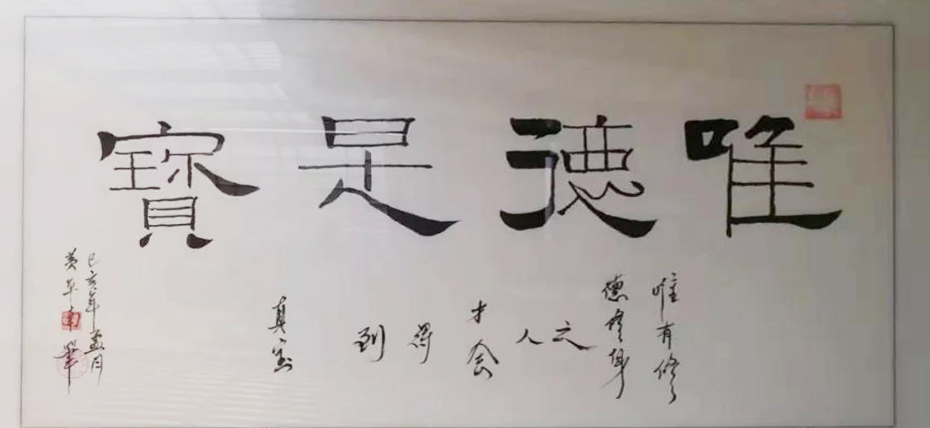 唯德是寶
唯有修
德修身
之
人
才会
得
到
真宝
己亥年孟月